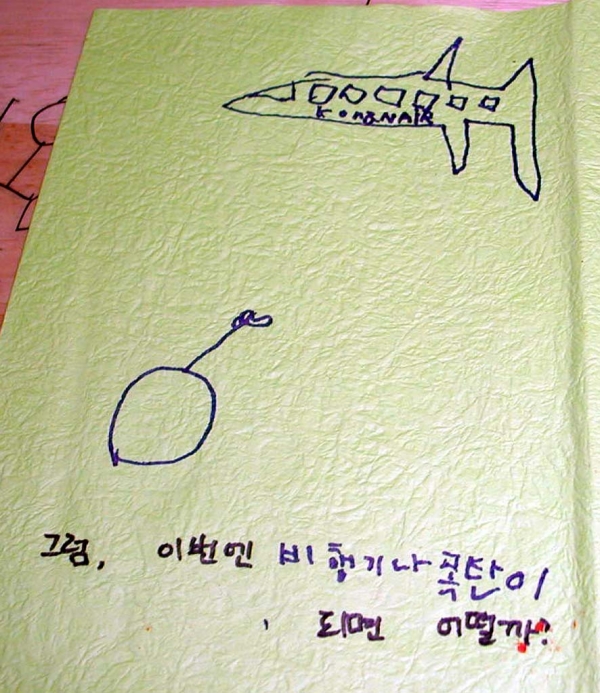 KOREAN AIR
그럼, 이번엔 비행기나 폭탄이
되면 어떨까?